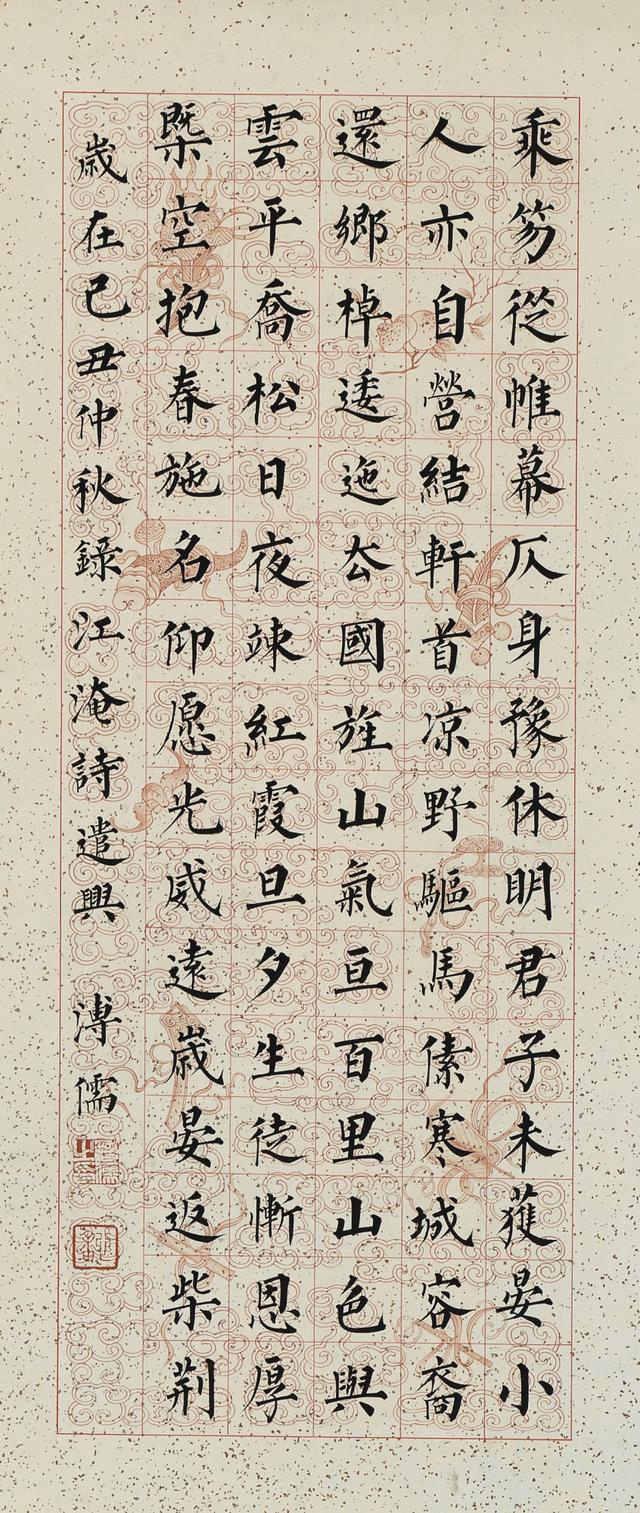 乘笏從帷幕仄身豫休明君子未蒦晏小
人亦自營結軒首凉野驅馬傃寒城容裔
還鄉棹逶迤去國旌山氣亘百里山色與
雲平喬松日夜竦紅霞旦夕生徒慚恩厚
槩空抱春施名仰愿光威遠歲晏返柴荆
歲在己丑仲秋錄江淹詩遣興 溥儒